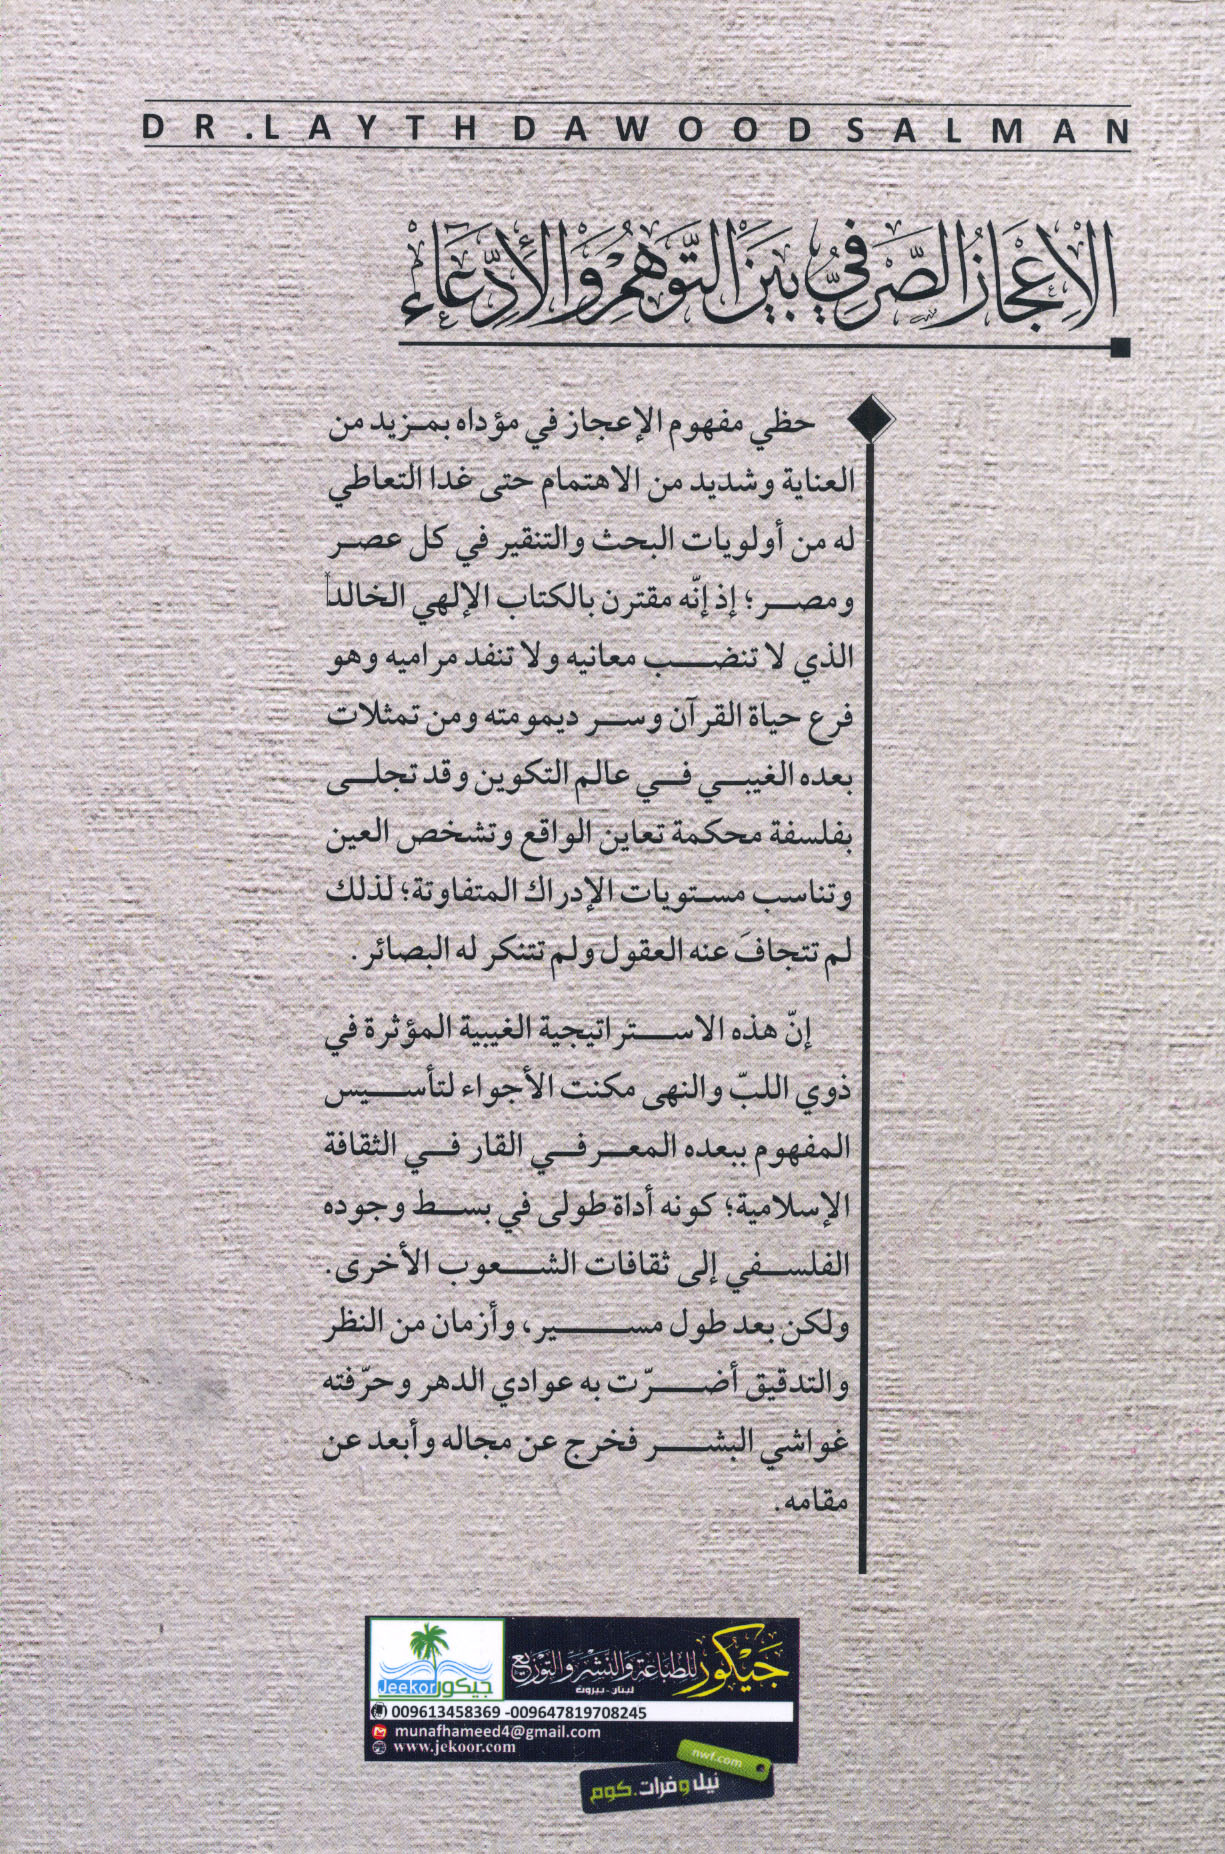 DR.LAYTH DAWOOD SALMAN
الإعجاز الصرفي بين التوهم والادعاء
حظي مفهوم الإعجاز في مؤداه بمزيد من
العناية وشديد من الاهتمام حتى غدا التعاطي
له من أولويات البحث والتنقير في كل عصر
ومصر؛ إذ إنّه مقترن بالكتاب الإلهي الخالد
الذي لا تنضب معانيه ولا تنفد مراميه وهو
فرع حياة القرآن وسر ديمومته ومن تمثلات
بعده الغيبي في عالم التكوين وقد تجلى
بفلسفة محكمة تعاين الواقع وتشخص العين
وتناسب مستويات الإدراك المتفاوتة؛ لذلك
لم تتجافَ عنه العقول ولم تتنكر له البصائر.
إنّ هذه الاستراتيجية الغيبية المؤثرة في
ذوي اللبّ والنهى مكنت الأجواء لتأسيس
المفهوم ببعده المعرفي القار في الثقافة
الإسلامية؛ كونه أداة طولى في بسط وجوده
الفلسفي إلى ثقافات الشعوب الأخرى.
ولكن بعد طول مسير، وأزمان من النظر
والتدقيق أضرّت به عوادي الدهر وحرّفته
غواشي البشر فخرج عن مجاله وأبعد عن
مقامه.
جيكور للطباعة والنشر والتوزيع
لبنان - بيروت
Jeekor جيكور
009613458369 -009647819708245
munafhameed4@gmail.com
www.jekoor.com
nwf.com
نيل وفرات.كوم